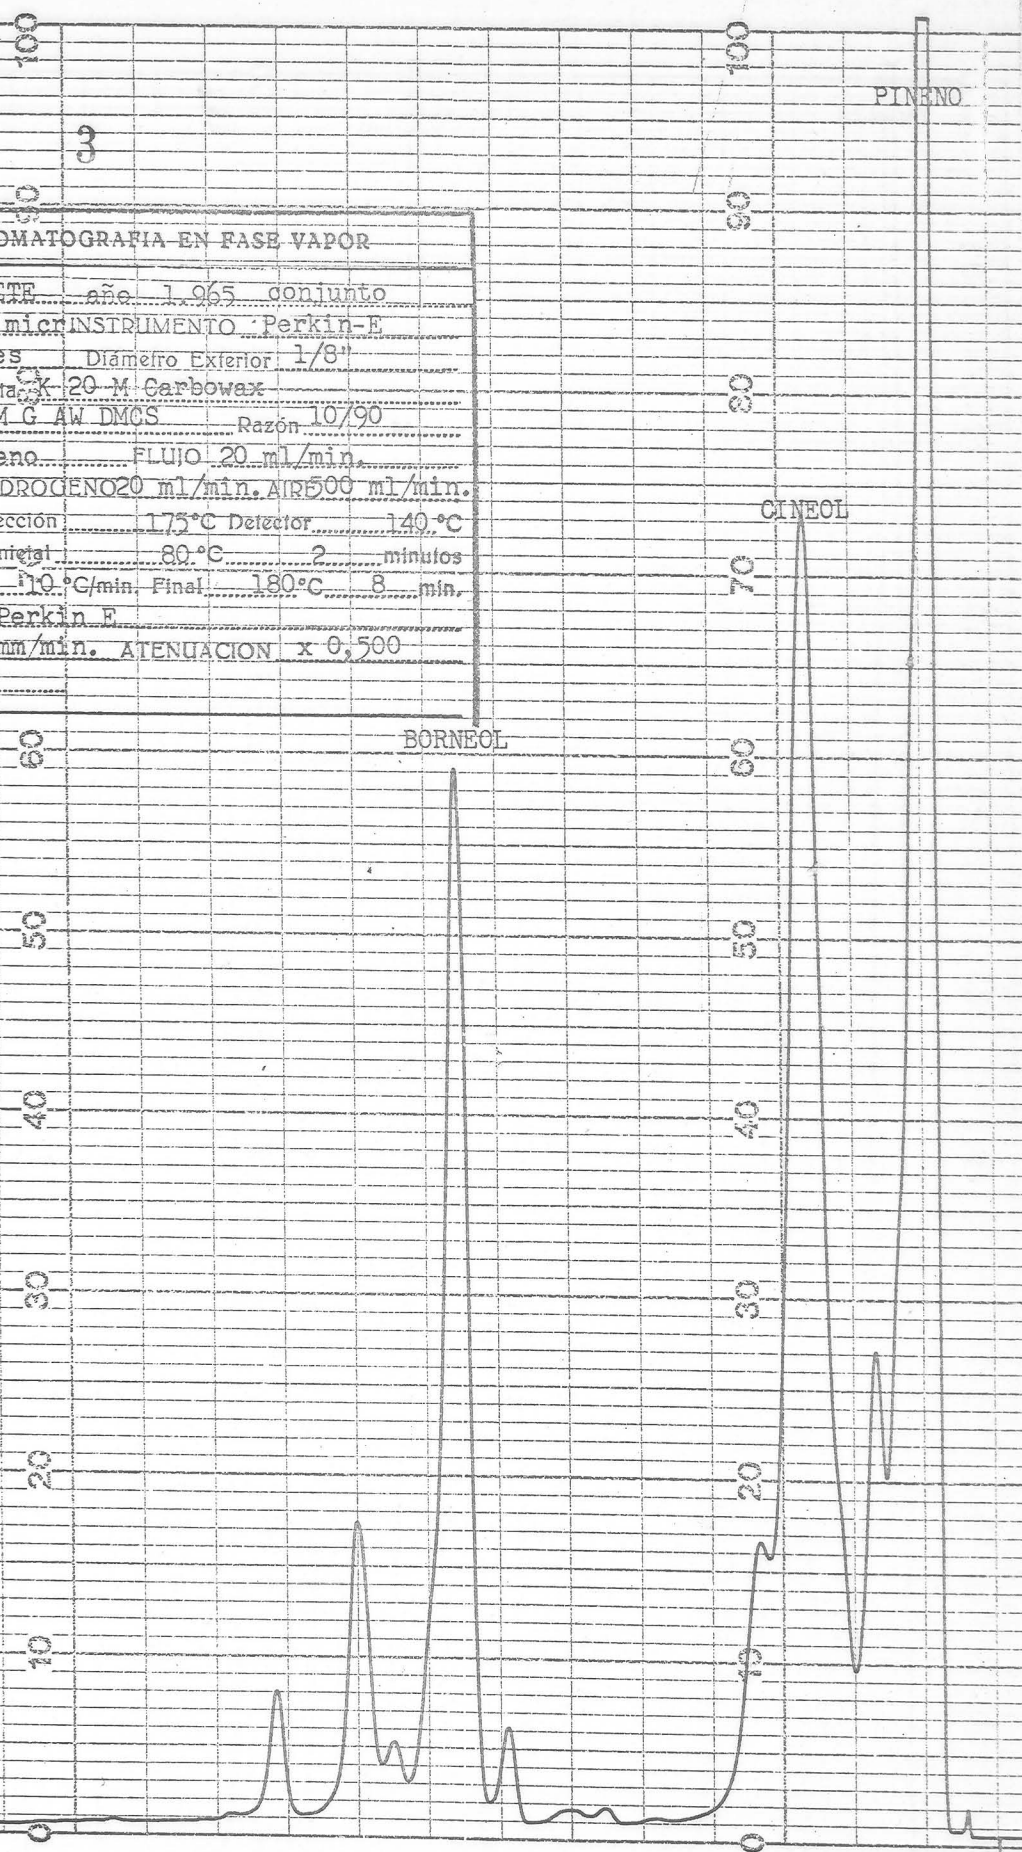 100
100
PINENO
3
90
90
OMATOGRAFIA EN FASE VAPOR
CTE año 1.965 conjunto
micr INSTRUMENTO Perkin-E
es Diámetro Exterior 1/8"
ta K 20 M Carbowax
M G AW DMCS Razón 10/90
eno FLUJO 20 ml/min.
DROGENO 20 ml/min. AIRE 500 ml/min.
ección 175°C Detector 140 °C
80 °C 2 minutos
10 °C/min. Final 180°C 8 min.
Perkin E
mm/min. ATENUACION x 0,500
80
CINEOL
70
60
BORNEOL
60
50
50
40
40
30
30
20
20
10
10
0
0